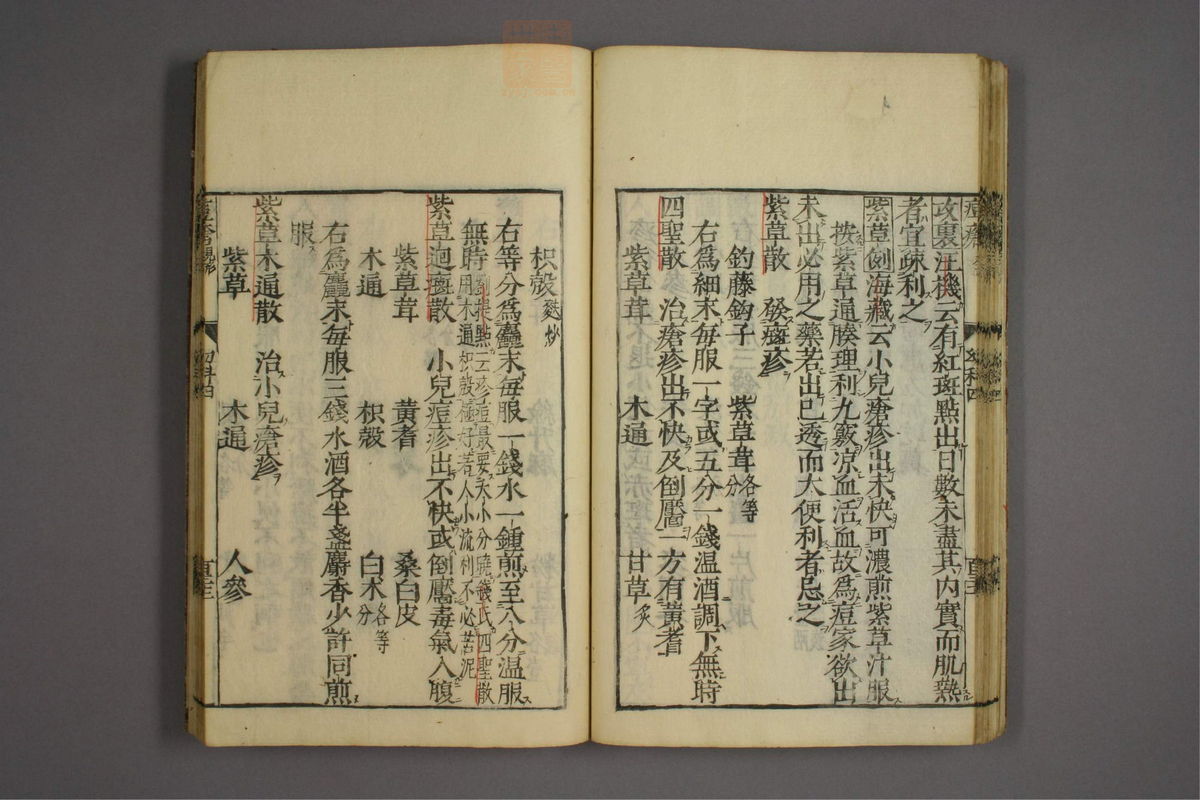 攻裏汪機云有紅斑點出日數未盡其內實而肌熱
者宜疎利之
紫草倒海藏云小兒瘡疹出未快可濃煎紫草汁服
按紫草通腠理利九竅凉血活血故為痘家欲出
未出必用之藥若出已透而大便利者忌之
紫草散 發瘢疹
釣藤鈎子 紫草茸各等分
右為細末每服一字或五分一錢温酒調下無時
四聖散 治瘡疹出不快及倒靨一方有黃耆
紫草茸 木通 甘草炙
枳殼麩炒
右等分為麤末每服一錢水一鍾煎至八分温服
無時
紫草
用木通枳殼極好若人小流利不必苦泥
紫草𢌞斑散 小兒痘疹出不快或倒靨毒氣入腹
紫草茸 黃耆 桑白皮
木通 枳殼 白术各等分
右為麤末每服三錢水酒各半盞麝香少許同煎
服
紫草木通散 治小兒瘡疹
紫草 木通 人參